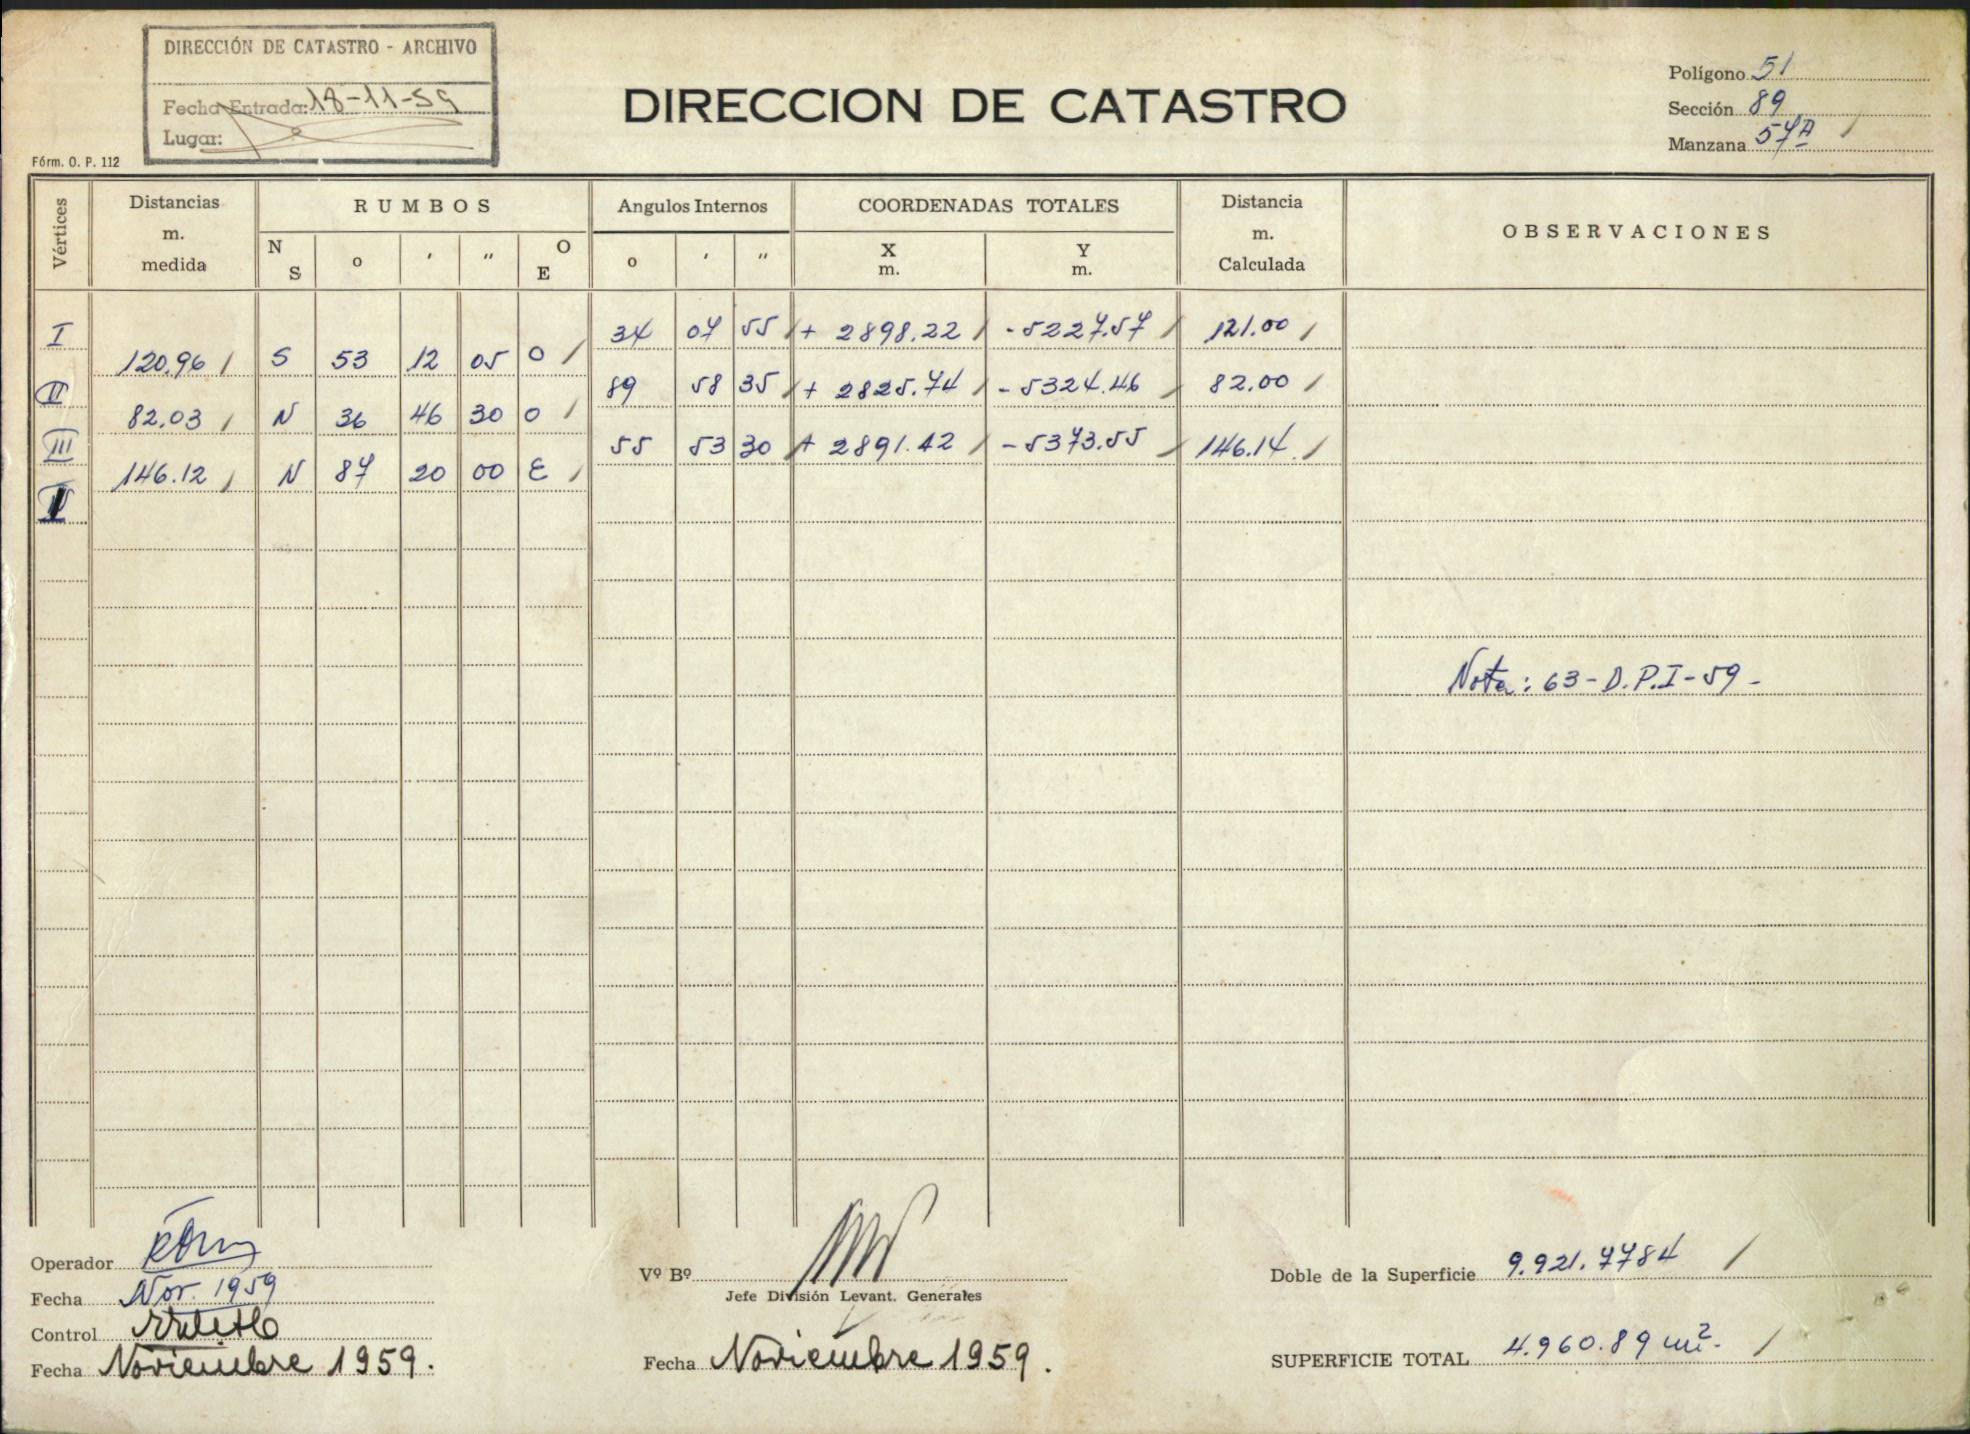 DIRECCIÓN DE CATASTRO - ARCHIVO
Fecha Entrada: 18-11-59
Lugar:
Fórm. O. P. 112
DIRECCION DE CATASTRO
Polígono 51
Sección 89
Manzana 57A
Vértices
Distancias m. medida
RUMBOS
N S o ' " O E
Angulos Internos
o ' "
COORDENADAS TOTALES
X m. Y m.
Distancia m. Calculada
OBSERVACIONES
I 34 07 55 + 2898.22 - 5227.57 121.00
120.96 S 53 12 05 O
II 89 58 35 + 2825.74 - 5324.46 82.00
82.03 N 36 46 30 O
III 55 53 30 + 2891.42 - 5373.55 146.14
146.12 N 87 20 00 E
I
Nota: 63-D.P.I-59-
Operador
Fecha Nov. 1959
Control
Fecha Noviembre 1959.
Vº Bº
Jefe División Levant. Generales
Fecha Noviembre 1959.
Doble de la Superficie 9.921.7784
SUPERFICIE TOTAL 4.960.89 m².